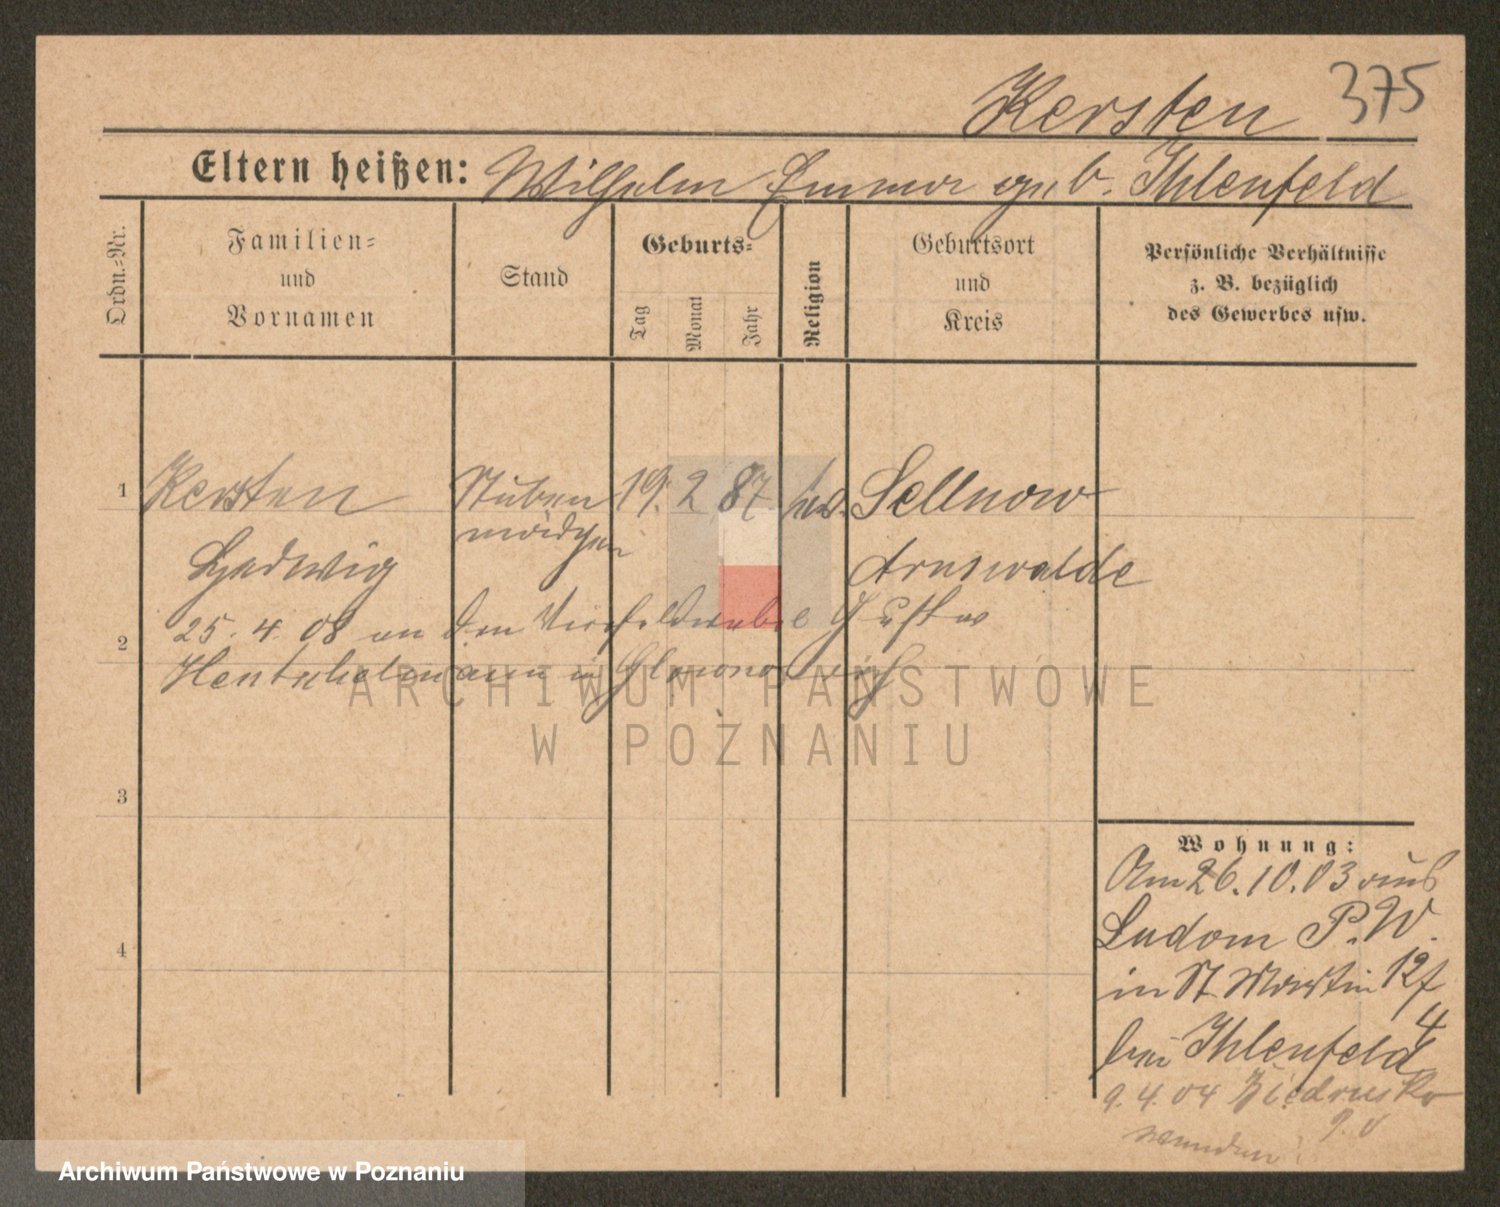 Kersten 375
Eltern heißen: Wilhelm Emma geb. Ihlenfeld
Ordn.-Nr.
Familien-
und
Vornamen
Stand
Geburts-
Tag
Monat
Jahr
Religion
Geburtsort
und
Kreis
Persönliche Verhältnisse
z. B. bezüglich
des Gewerbes usw.
1 Kersten Stuben 19. 2 87 Sellnow
mädchen
Hedwig Arnswalde
25. 4. 08 an den Gustav
2
in
ARCHIWUM PAŃSTWOWE
W POZNANIU
3
4
Wohnung:
Am 26.10.03 aus
Ludom P. W.
in St. Martin 12f
4
bei Ihlenfeld
9. 4. 04 Biedrusko
Archiwum Państwowe w Poznaniu